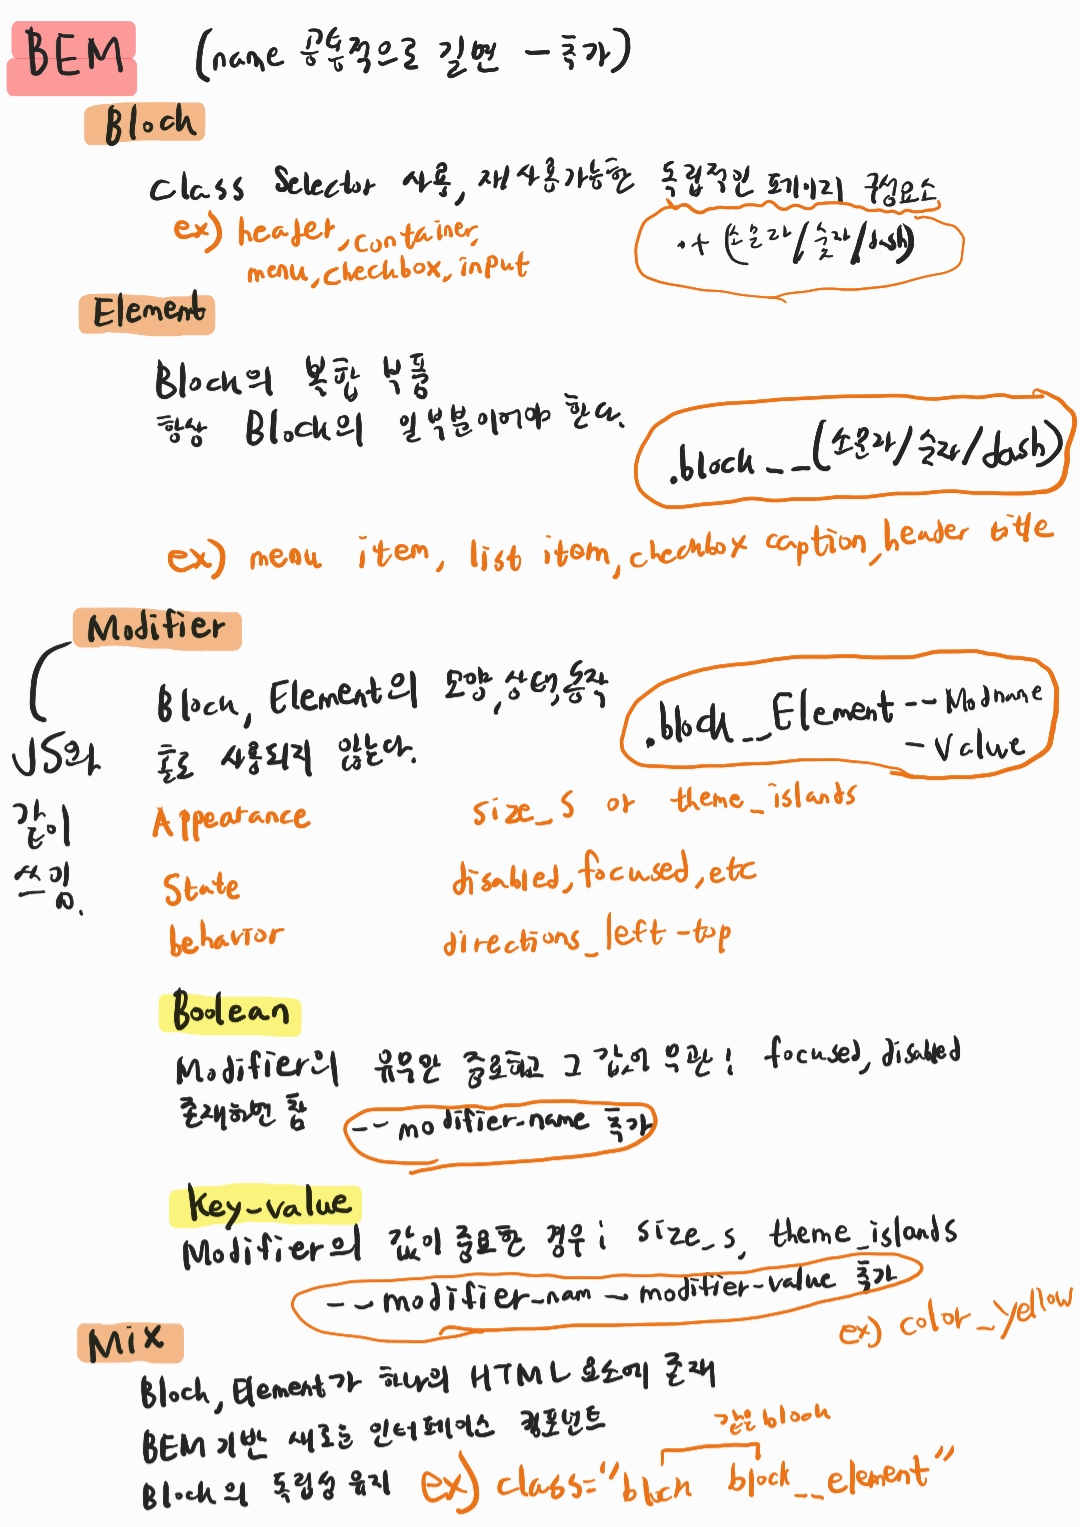 BEM (name 공통적으로 길면 - 추가)
Block
class Selector 사용, 재사용가능한 독립적인 페이지 구성요소
ex) header, container,
menu, checkbox, input
.+ (소문자/숫자/dash)
Element
Block의 복합 부품
항상 Block의 일부분이어야 한다.
.block__(소문자/숫자/dash)
ex) menu item, list item, checkbox caption, header title
Modifier
Block, Element의 모양, 상태, 동작
홀로 사용되지 않는다.
.block__Element--Modname
-Value
JS와
같이
쓰임.
Appearance size_s or theme_islands
State disabled, focused, etc
behavior directions_left-top
Boolean
Modifier의 유무만 중요하고 그 값이 무관! focused, disabled
존재하면 참
--modifier-name 추가
Key-value
Modifier의 값이 중요한 경우; size_s, theme_islands
--modifier-nam-modifier-value 추가
ex) color_yellow
Mix
Block, Element가 하나의 HTML 요소에 존재
BEM 기반 새로운 인터페이스 컴포넌트
같은 block
Block의 독립성 유지 ex) class="block block__element"